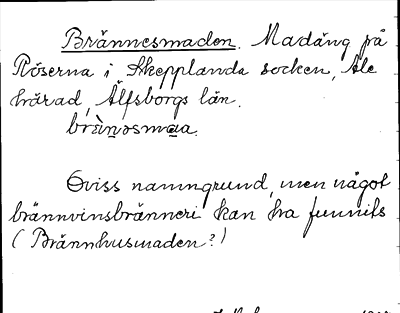 Brännesmaden. Madäng på
Röserna i Skepplanda socken, Ale
härad, Älfsborgs län.
Oviss namngrund, men något
brännvinsbränneri kan ha funnits
(Brännhusmaden?)